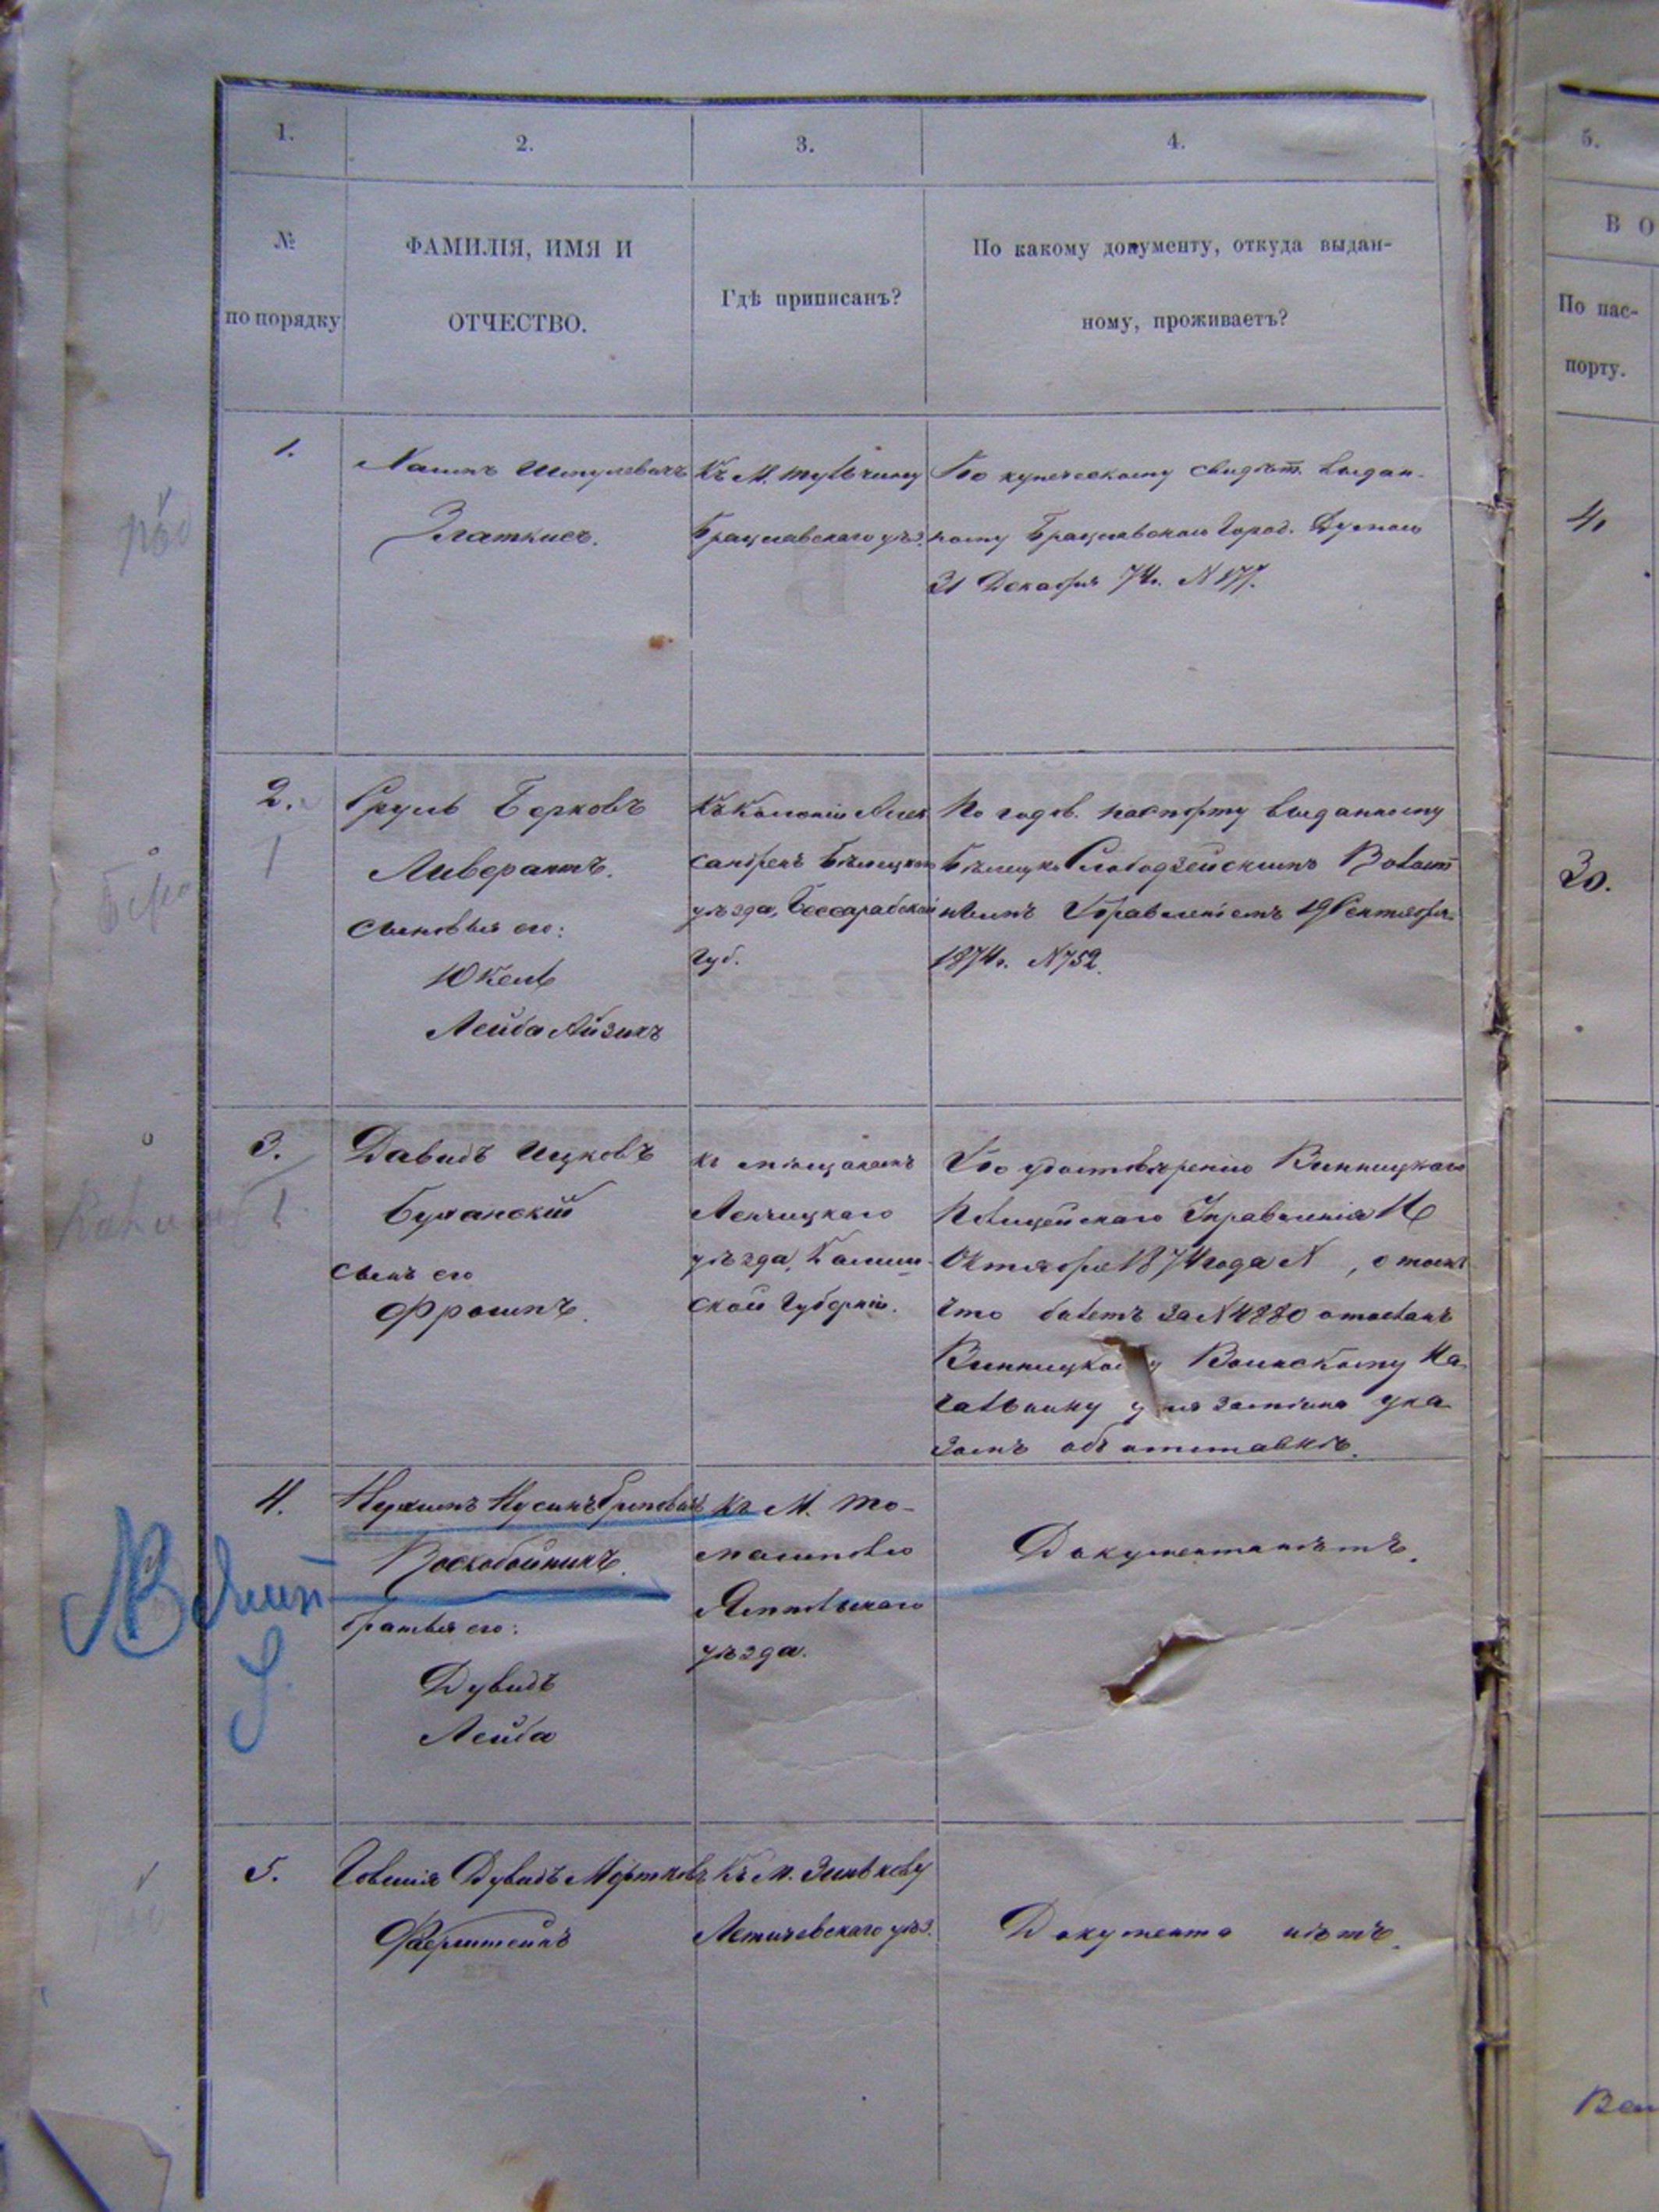 1. 2. 3. 4. 5.
№ по порядку
ФАМИЛІЯ, ИМЯ И
ОТЧЕСТВО.
Гдѣ приписанъ?
По какому документу, откуда выдан-
ному, проживаетъ?
В О
По пас-
порту.
1.
Златкисъ.
Къ М. Тульчину
Брацлавскаго уѣз.
По купеческому свидѣт. выдан-
ному Брацлавскою Город. Думою
31 Декабря 74г. № 177.
2.
Сруль Берковъ
Ливерантъ.
сыновья его:
Юкель
Лейба Айзикъ
Къ Колоніи Алек
сандренъ Бѣлецкаго
уѣзда, Бессарабской
Губ.
По годов. паспорту выданному
Слободзейскимъ Волост
нымъ Управленіемъ 19 Сентября
1874г. № 752.
30.
3.
Давидъ Ицковъ
сынъ его
Фроимъ.
къ мѣщанамъ
Ленчицкаго
уѣзда, Калиш-
ской Губерніи.
По удостовѣренію Винницкаго
Полицейскаго Управленія
Октября 1874 года № , о томъ
что билетъ за № 4880 отосланъ
Воинскому На
чальнику замѣна ука
зомъ объ отставкѣ.
4.
Воскобойникъ.
братья его:
Дувидъ
Лейба
къ М. То-
машполю
Ямпольскаго
уѣзда.
Документа нѣтъ.
5.
Говшія Дувидъ Мортковъ
Къ М. Зинькову
Летичевскаго уѣз.
Документа нѣтъ.